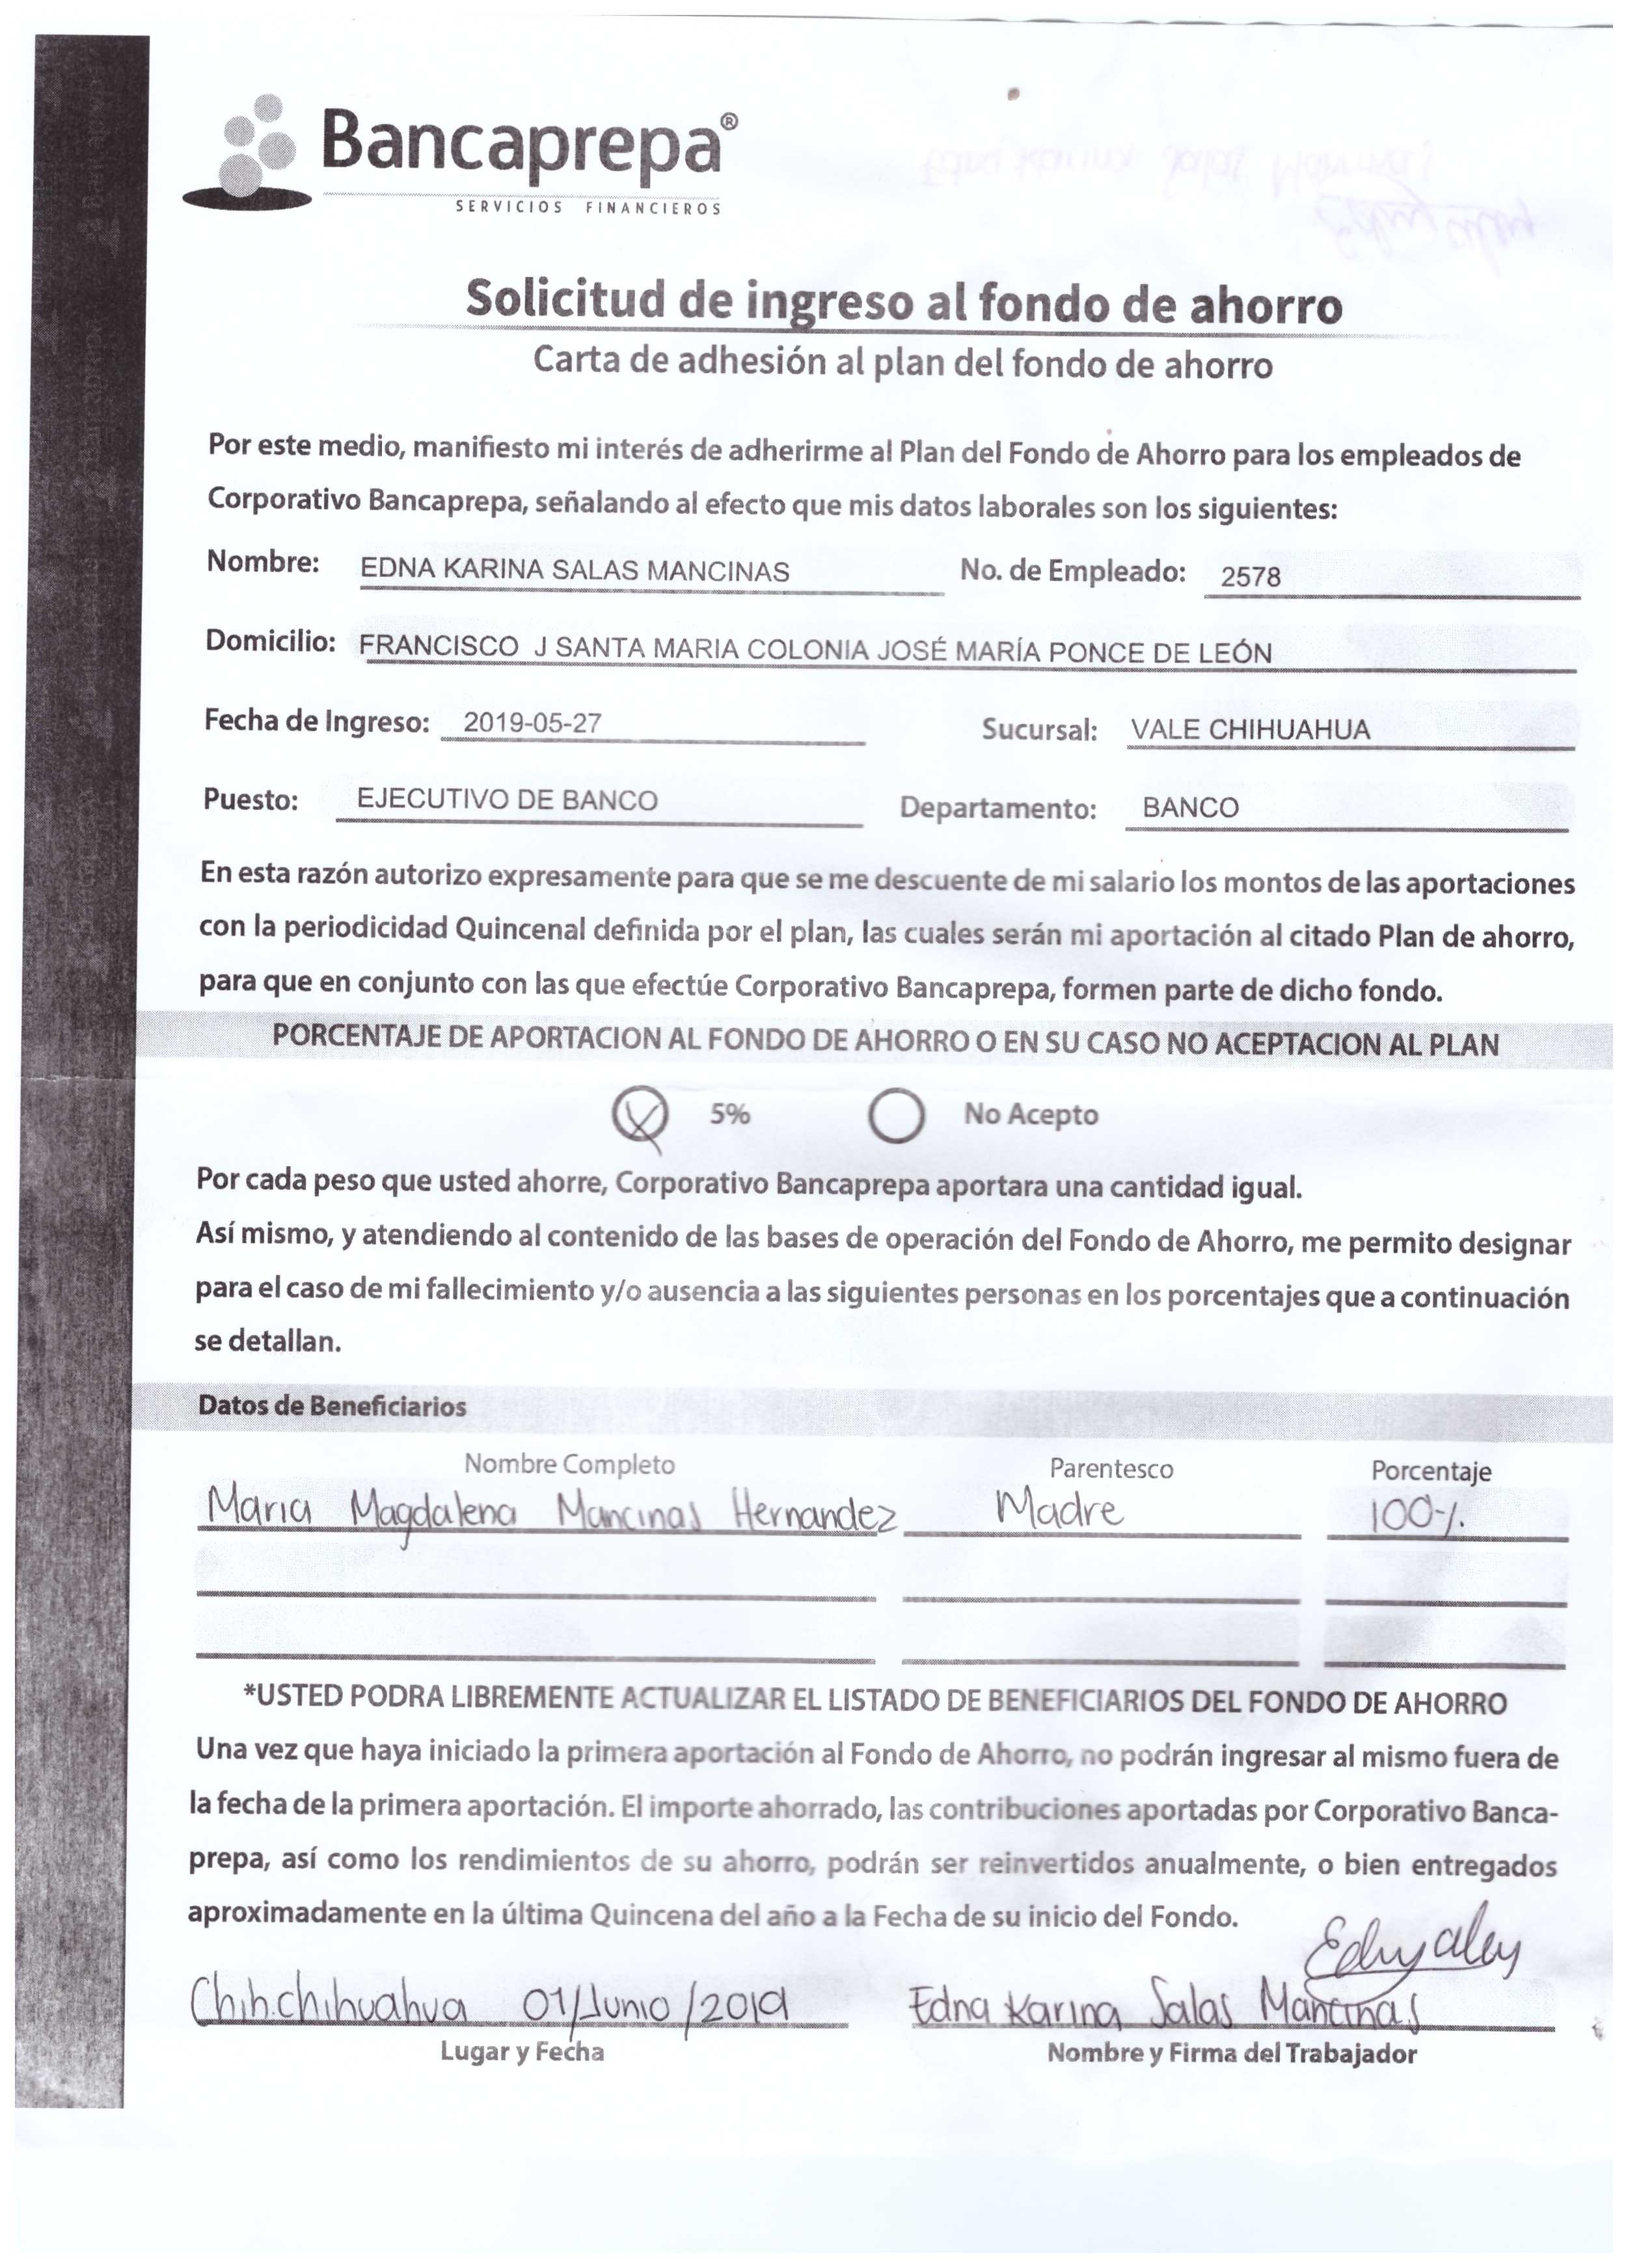 Bancaprepa®
SERVICIOS FINANCIEROS
Solicitud de ingreso al fondo de ahorro
Carta de adhesión al plan del fondo de ahorro
Por este medo, manifiesto mi interés de adherirme al Plan del Fondo de Ahorro para los empleados de
Corporativo Bancaprepa, señalando al efecto que mis datos laborales son los siguientes:
Nombre: EDNA KARINA SALAS MANCINAS No. de Empleado: 2578
Domicilio: FRANCISCO J SANTA MARIA COLONIA JOSÉ MARÍA PONCE DE LEÓN
Fecha de Ingreso: 2019-05-27 Sucursal: VALE CHIHUAHUA
Puesto: EJECUTIVO DE BANCO Departamento: BANCO
En esta razón autorizo expresamente para que se me descuente de mi salario los montos de las aportaciones
con la periodicidad Quincenal definida por el plan, las cuales serán mi aportación al citado Plan de ahorro,
para que en conjunto con las que efectúe Corporativo Bancaprepa, formen parte de dicho fondo.
PORCENTAJE DE APORTACION AL FONDO DE AHORRO O EN SU CASO NO ACEPTACION AL PLAN
5% No Acepto
Por cada peso que usted ahorre, Corporativo Bancaprepa aportara una cantidad igual.
Así mismo, y atendiendo al contenido de las bases de operación del Fondo de Ahorro, me permito designar
para el caso de mi fallecimiento y/o ausencia a las siguientes personas en los porcentajes que a continuación
se detallan.
Datos de Beneficiarios
Nombre Completo Parentesco Porcentaje
Maria Magdalena Mancinas Hernandez Madre 100%
*USTED PODRA LIBREMENTE ACTUALIZAR EL LISTADO DE BENEFICIARIOS DEL FONDO DE AHORRO
Una vez que haya iniciado la primera aportación al Fondo de Ahorro, no podrán ingresar al mismo fuera de
la fecha de la primera aportación. El importe ahorrado, las contribuciones aportadas por Corporativo Banca-
prepa, así como los rendimientos de su ahorro, podrán ser reinvertidos anualmente, o bien entregados
aproximadamente en la última Quincena del año a la Fecha de su inicio del Fondo.
Chih.chihuahua 01/Junio/2019 Edna Karina Salas Mancinas
Lugar y Fecha Nombre y Firma del Trabajador